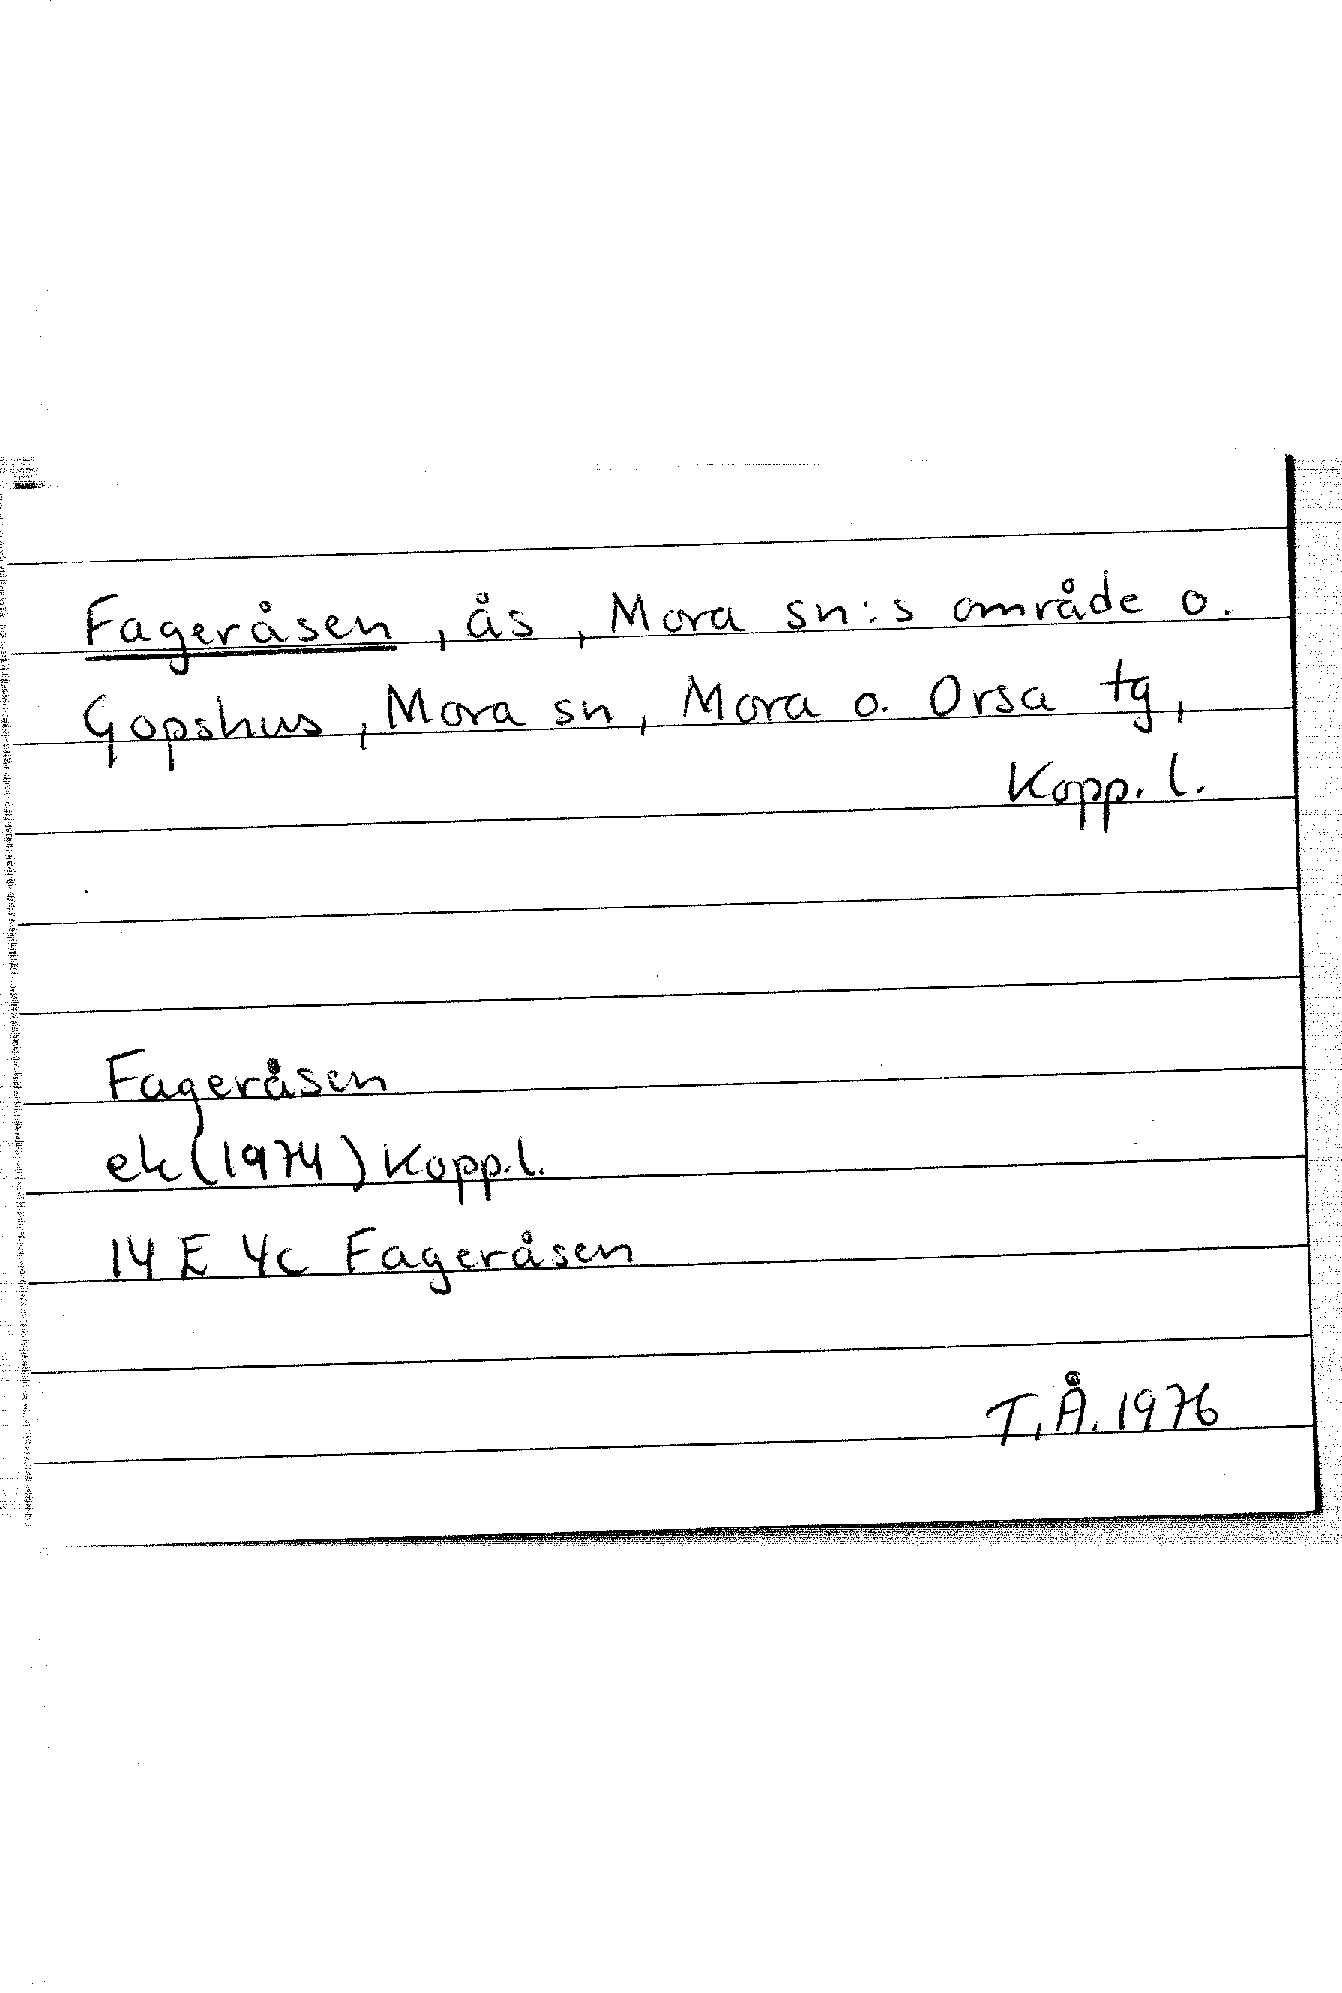 Fageråsen, ås, Mora sn:s område o.
Gopshus, Mora sn, Mora o. Orsa tg,
Kopp. l.
Fageråsen
ek (1974) Kopp.l.
14 E 4c Fageråsen
T.Å. 1976